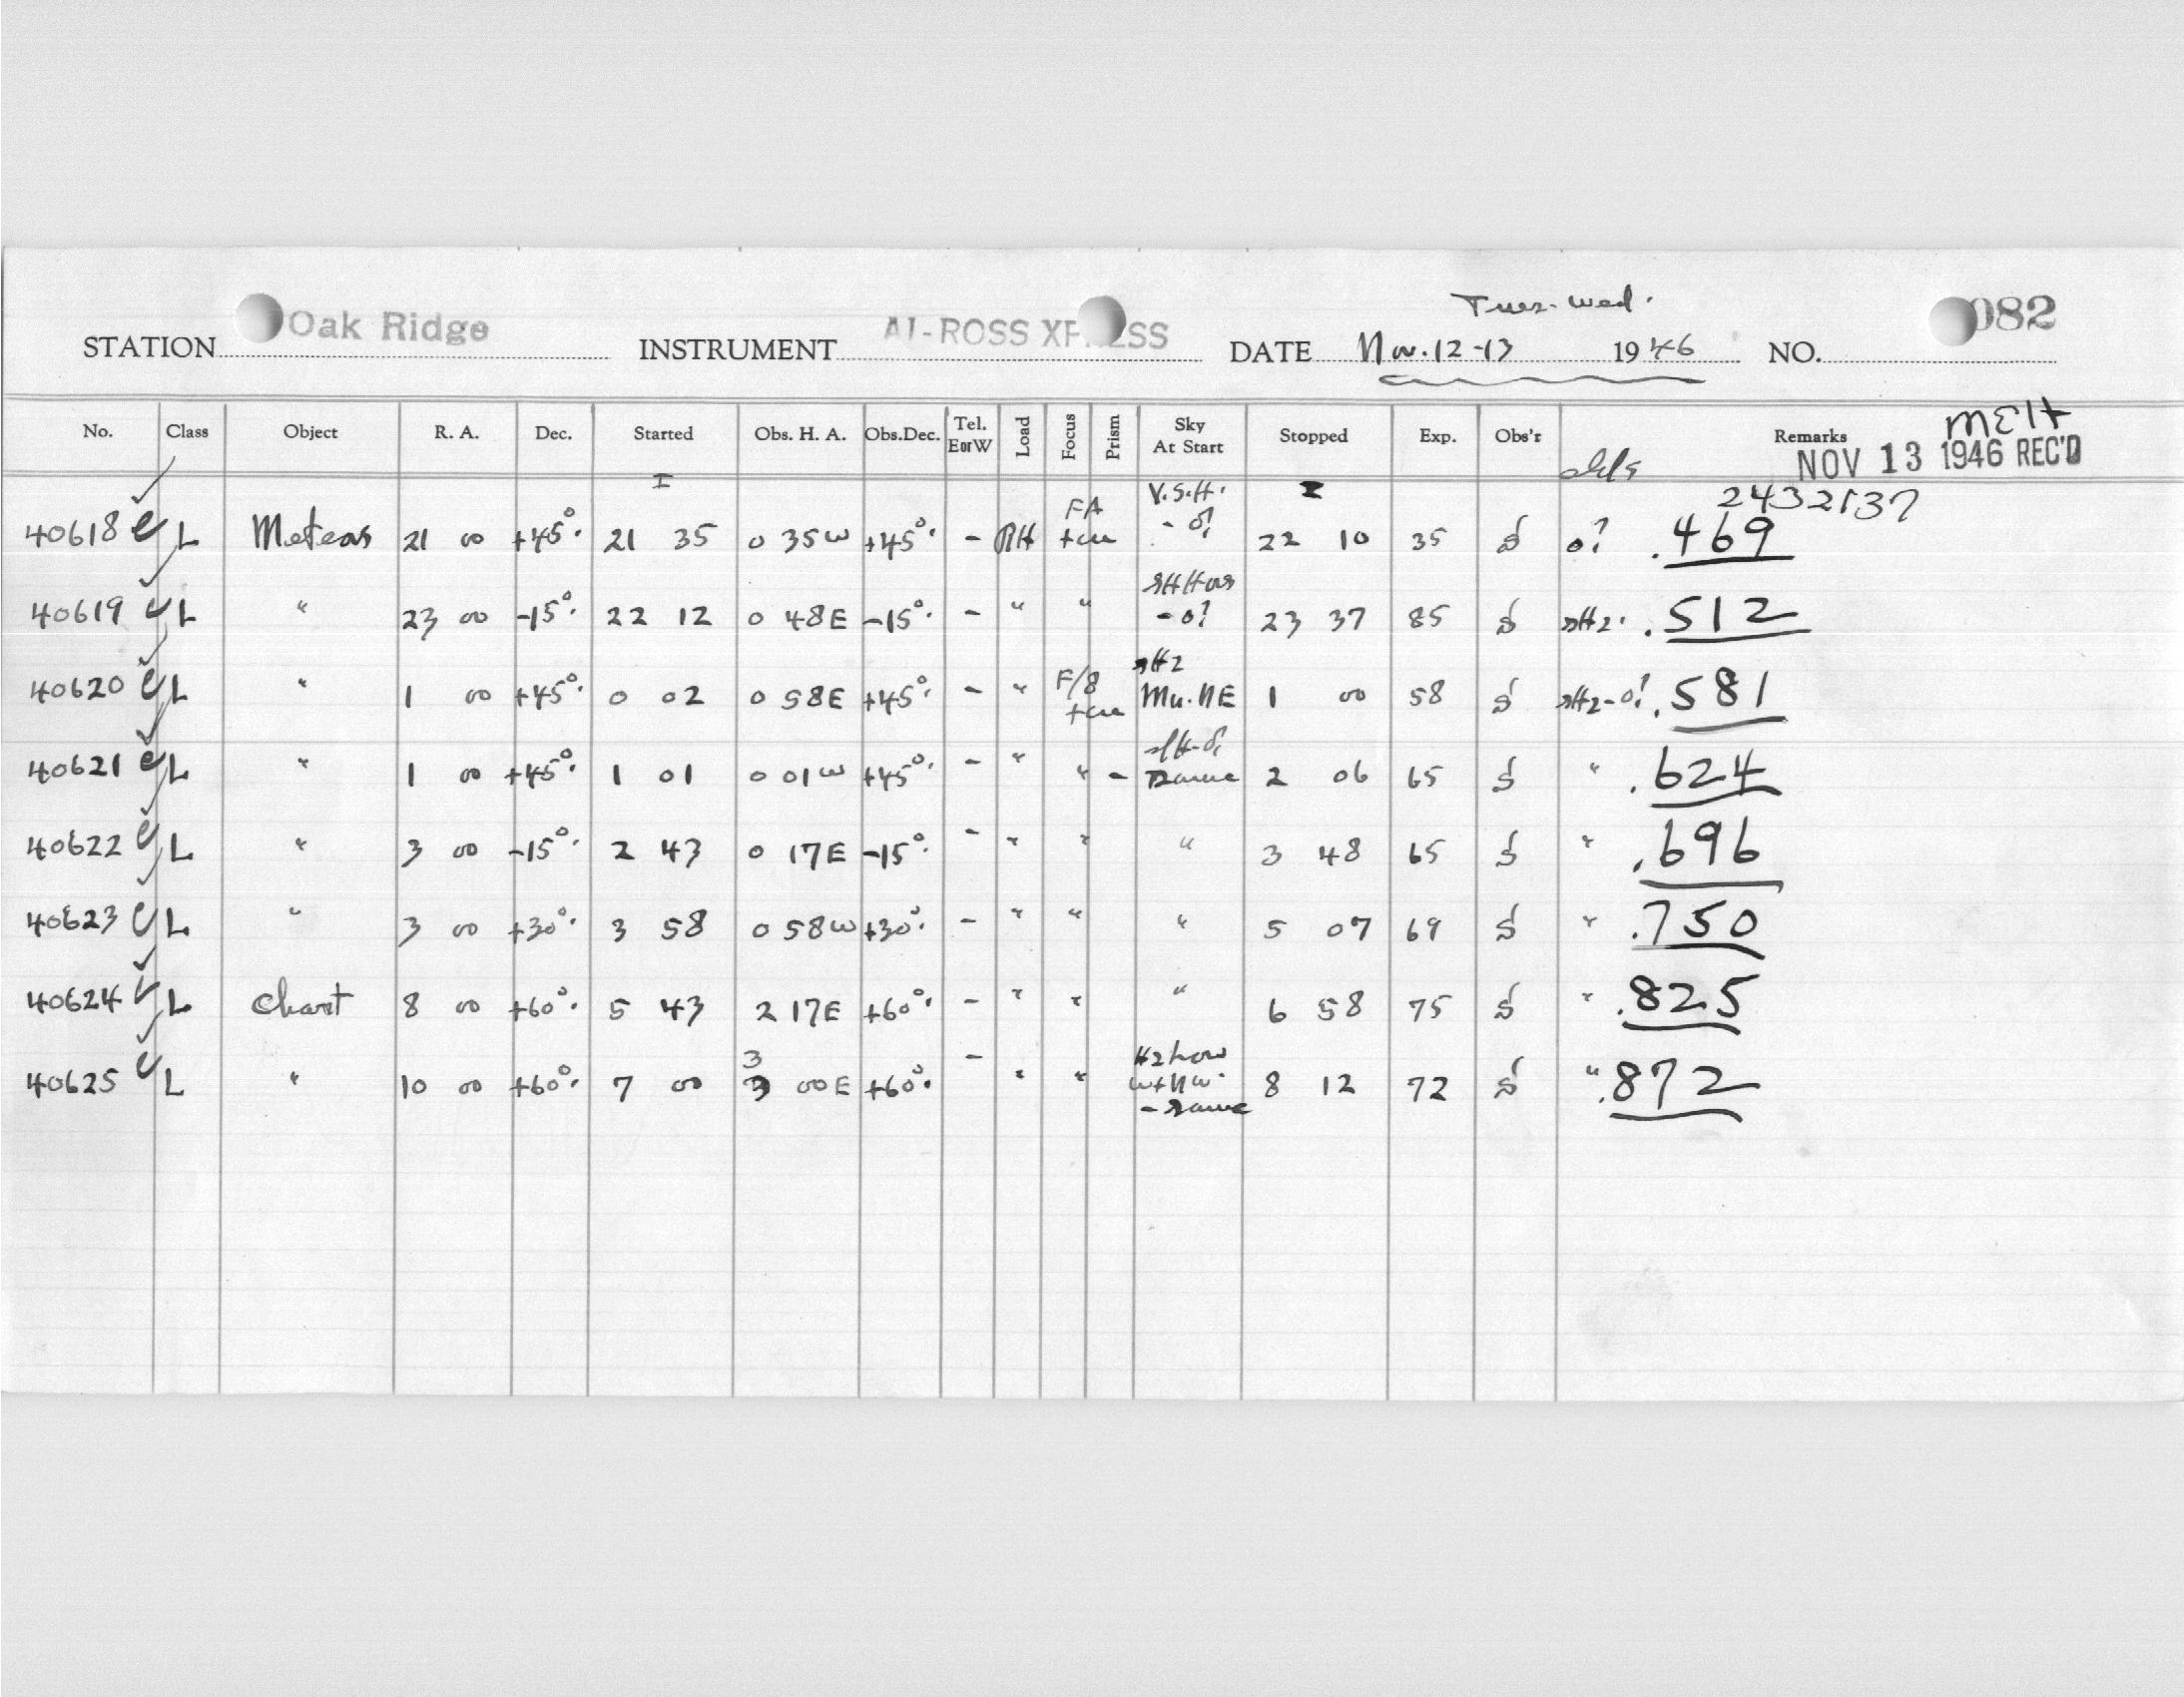 Tues-Wed.
STATION Oak Ridge INSTRUMENT AI-ROSS XP SS DATE Nov. 12-13 1946 NO. 082
No. Class Object R. A. Dec. Started Obs. H. A. Obs.Dec. Tel. EorW Load Focus Prism Sky At Start Stopped Exp. Obs'r Remarks MEH
NOV 13 1946 REC'D
I I 2432137
40618 L Meteors 21 00 +45°. 21 35 0 35W +45°. - RH FA V.S.H. 22 10 35 S 0? .469
40619 L " 23 00 -15°. 22 12 0 48E -15°. - " " - 0? 23 37 85 S sHz. .512
40620 L " 1 00 +45°. 0 02 0 58E +45°. - " F/8 sHz Mu. NE 1 00 58 S sHz-0? .581
40621 L " 1 00 +45°. 1 01 0 01W +45°. - " " - same 2 06 65 S " .624
40622 L " 3 00 -15°. 2 43 0 17E -15°. - " " " 3 48 65 S " .696
40623 L " 3 00 +30°. 3 58 0 58W +30°. - " " " 5 07 69 S " .750
40624 L Chart 8 00 +60°. 5 43 2 17E +60°. - " " " 6 58 75 S " .825
40625 L " 10 00 +60°. 7 00 3 00E +60°. - " " Hz low W+NW. - same 8 12 72 S " .872